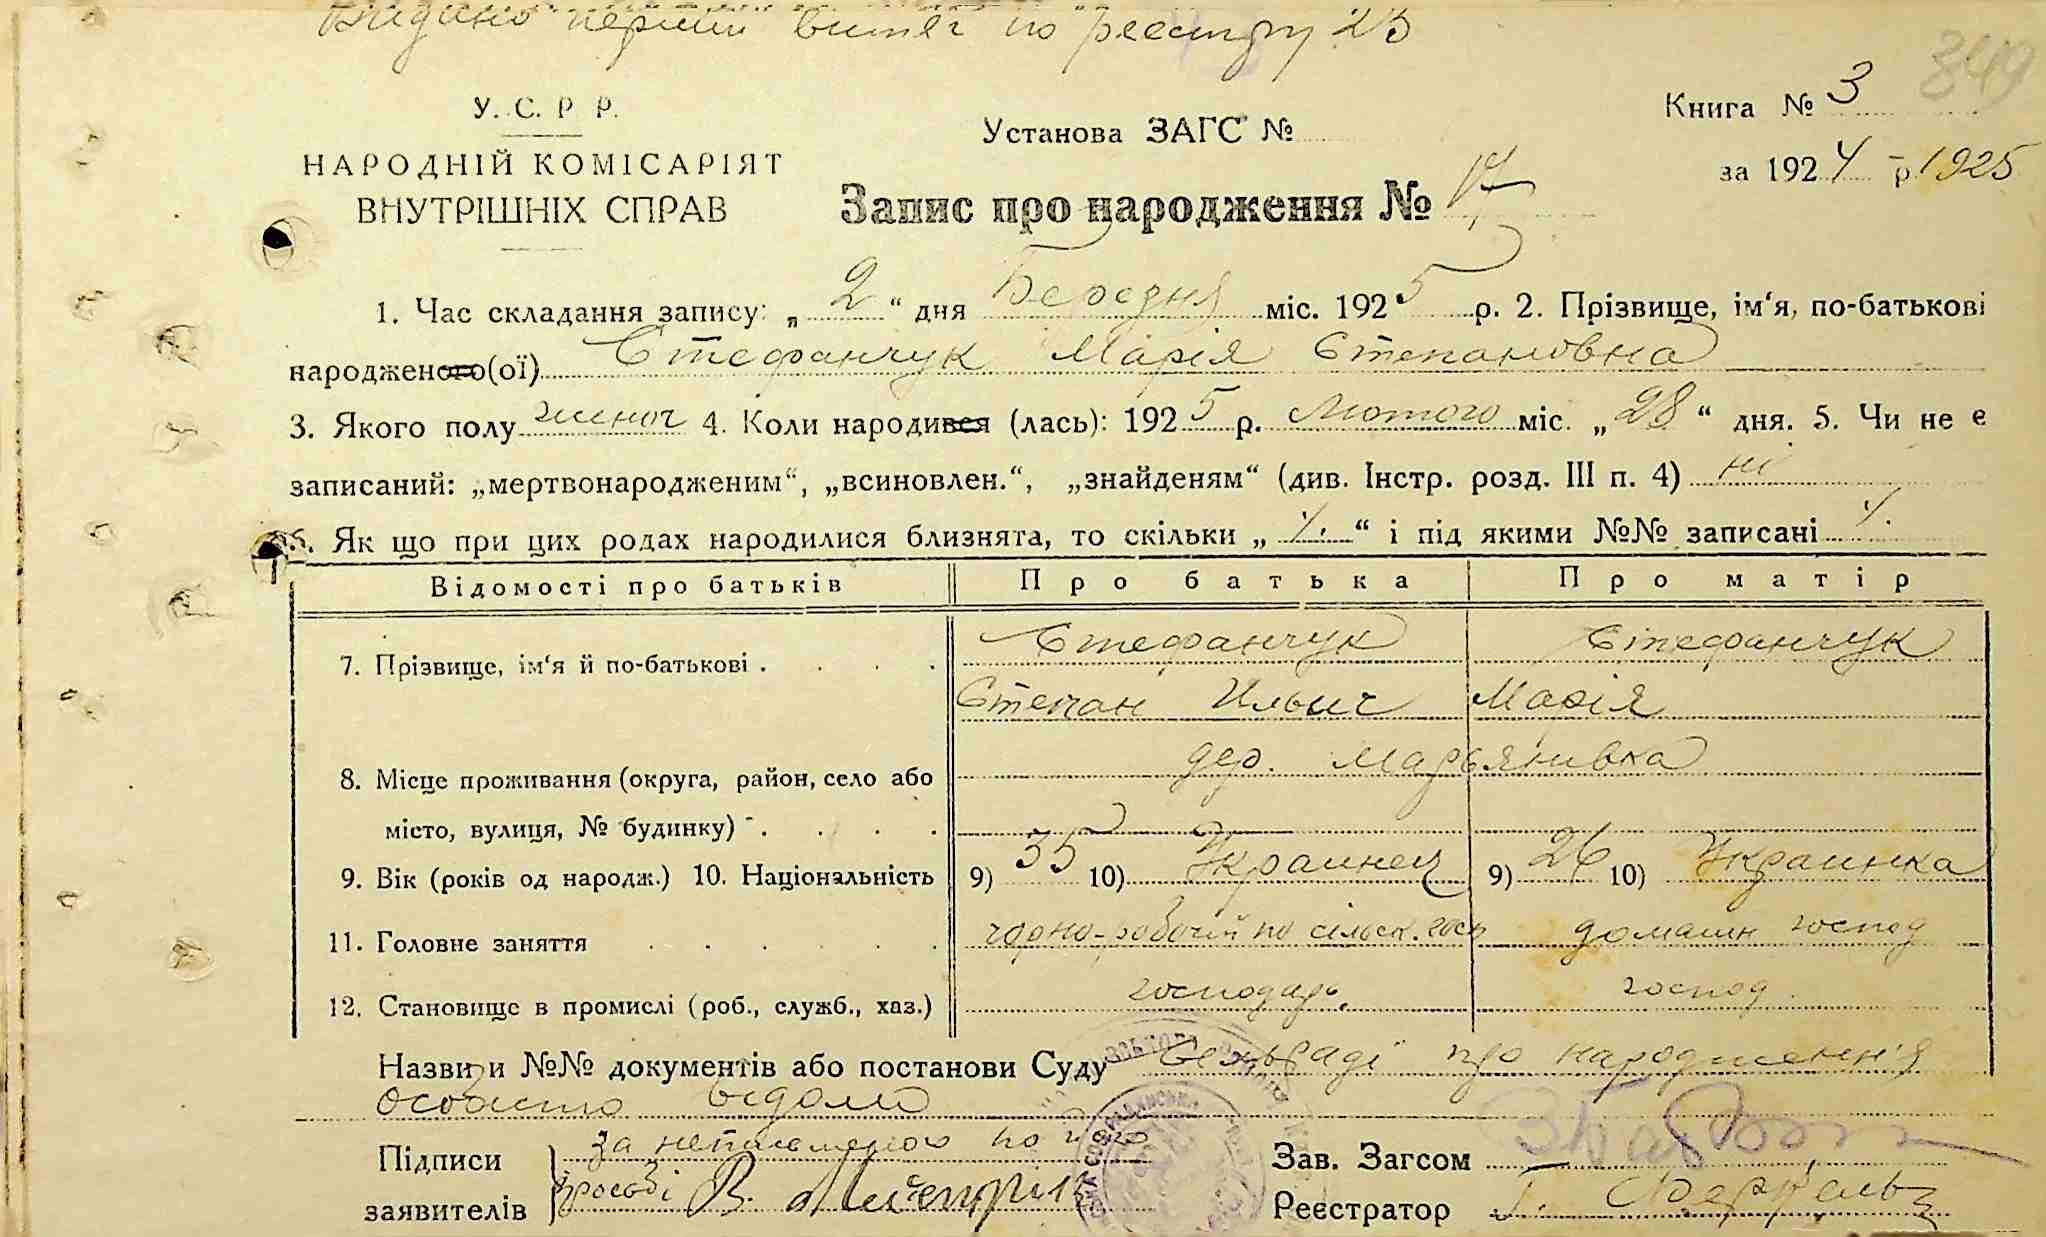 Видано перший витяг по реєстру 23
849
У. С. Р. Р.
НАРОДНІЙ КОМІСАРІЯТ
ВНУТРІШНІХ СПРАВ
Установа ЗАГС №
Книга № 3
за 1924 р 1925
Запис про народження № 17
1. Час складання запису: „ 2 “ дня Березня міс. 1925 р. 2. Прізвище, ім‘я, по-батькові
народженого(ої) Стефанчук Марія Степановна
3. Якого полу жіноч 4. Коли народився (лась): 1925 р. Лютого міс. „ 28 “ дня. 5. Чи не є
записаний: „мертвонародженим“, „всиновлен.“, „знайденям“ (див. Інстр. розд. III п. 4) ні
6. Як що при цих родах народилися близнята, то скільки „ “ і під якими №№ записані
Відомості про батьків Про батька Про матір
7. Прізвище, ім‘я й по-батькові . . . . Стефанчук Стефанчук
Степан Ильич Марія
дер. Марьянивка
8. Місце проживання (округа, район, село або
місто, вулиця, № будинку) . . . .
9. Вік (років од народж.) 10. Національність 9) 35 10) Украинец 9) 26 10) Украинка
11. Головне заняття . . . . . . чорно-робочий по сільск. госп домашн господ
12. Становище в промислі (роб., служб., хаз.) господарь. господ.
Назви и №№ документів або постанови Суду Сельради про народження
Особисто відомо
Підписи за неписьменого по його
заявителів просьбі В.
Зав. Загсом
Реєстратор